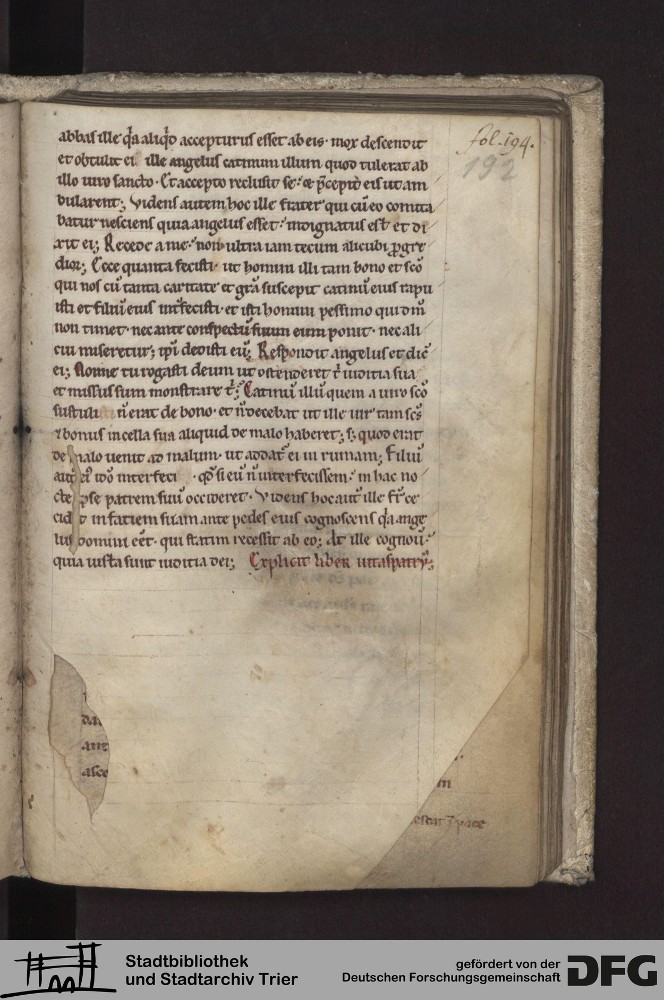 abbas ille q̄a aliq̄d accepturus esset ab eis · mox descendit
et obtulit ei ille angelus catinum illum quod tulerat ab
illo uiro sancto · Et accepto reclusit se · & p̄cepit eis ut am
bularent; Videns autem hoc ille frater qui cū eo comita
batur nesciens quia angelus esset · indignatus est et di
xit ei; Recede a me · non ultra iam tecum alicubi p̱gre
dior; Ecce quanta fecisti · ut homini illi tam bono et sc̄o
qui nos cū tanta caritate et gr̄a suscepit catinū eius rapu
isti et filiū eius int̄fecisti · et isti homini pessimo qui dm̄
non timet · nec ante conspectū suum eum ponit · nec ali
cui miseretur; ip̄i dedisti eū; Respondit angelus et dic̄
ei; Nonne tu rogasti deum ut ostenderet t̄ iuditia sua
et missus sum monstrare t̄; Catinū illū quem a uiro sc̄o
sustuli n̄ erat de bono · et n̄ decebat ut ille uir tam sc̄s
⁊ bonus in cella sua aliquid de malo haberet; s; quod erat
de malo uenit ad malum · ut addat̄ ei in ruinam; Filiū
aut ei' ido int̄erfeci · qd̄ si eū n̄ interfecissem · in hac no
cte ipse patrem suū occideret · Videns hoc aut̄ ille fr̄ ce
cidit in faciem suam ante pedes eius cognoscens q̄a ange
lus domini eēt · qui statim recessit ab eo; At ille cognou̅ ·
quia iusta sunt iuditia dei; Explicit liber uitas patrū;
fol. 194.
192
asce
Stadtbibliothek
und Stadtarchiv Trier
gefördert von der
Deutschen Forschungsgemeinschaft
DFG